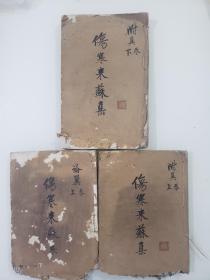 傷寒來蘇集
附翼卷下
傷寒來蘇集
論翼卷上
傷寒來蘇集
附翼卷上